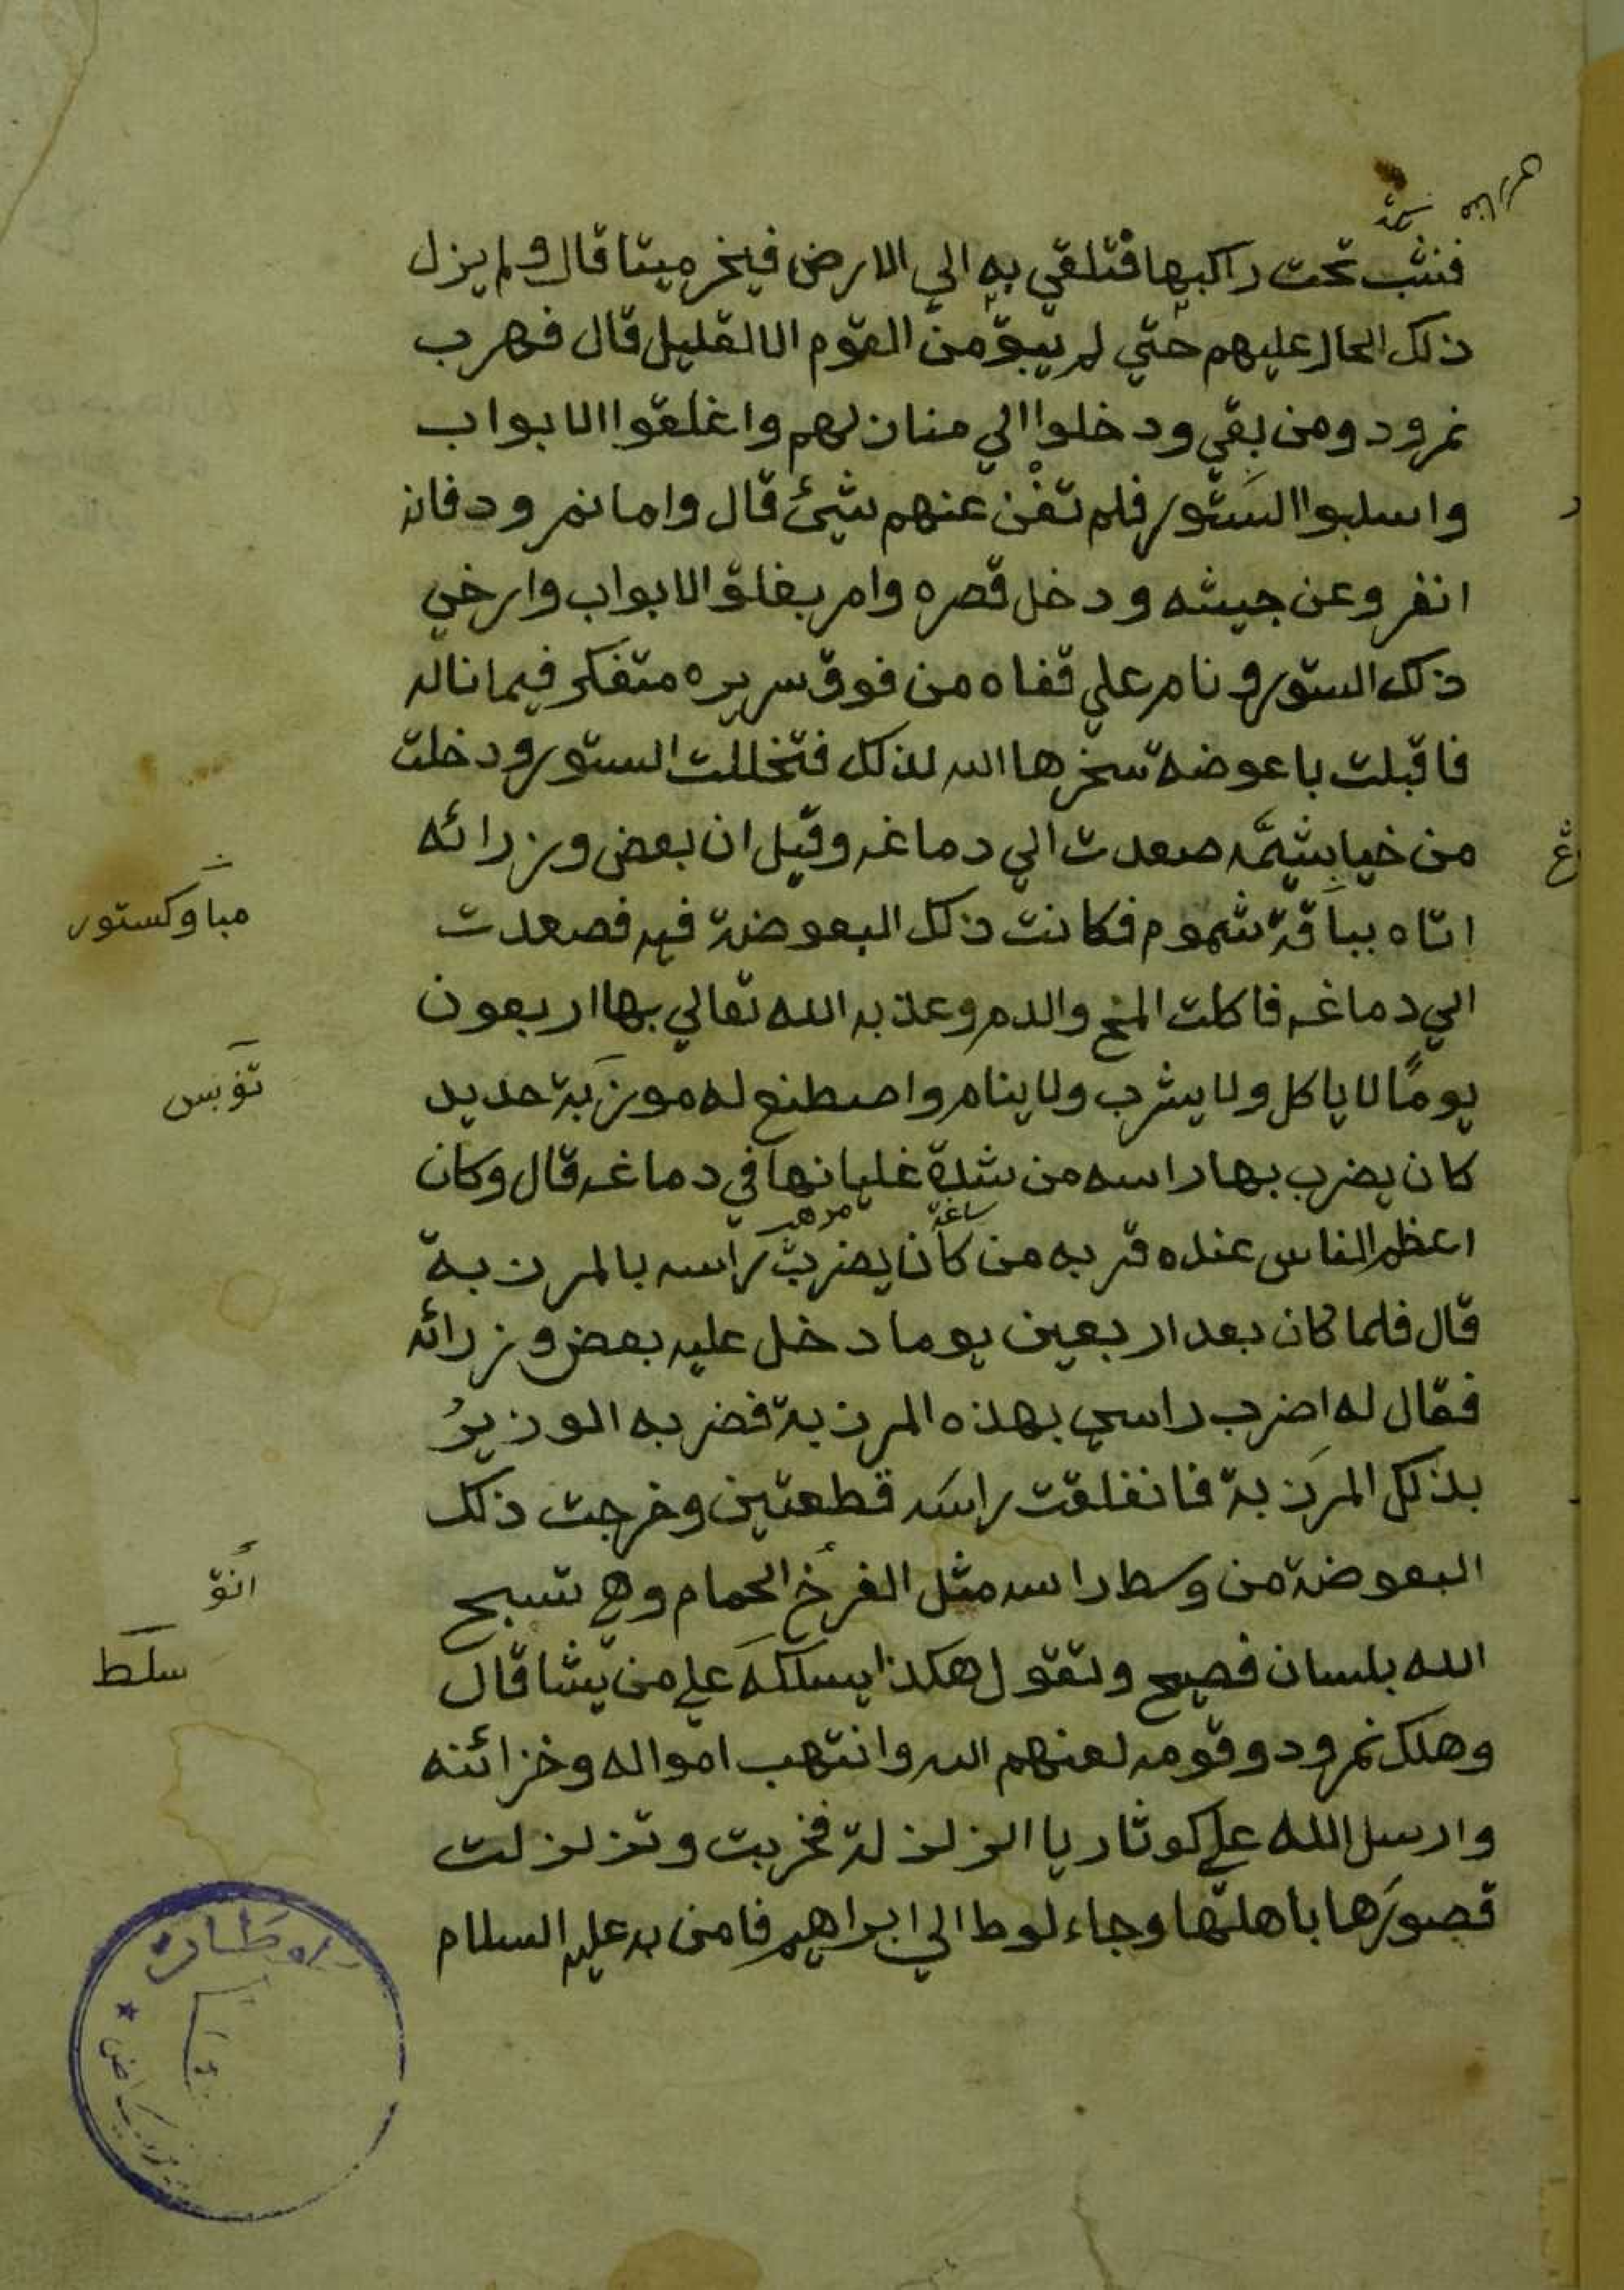 فنثب تحت راكبها فتلقي به الي الارض فيخر ميتا قال ولم يزل
ذلك الحال عليهم حتي لم يبق من القوم الا القليل قال فهرب
نمرود ومن بقي ودخلوا الي منازلهم واغلقوا الابواب
واسلبوا الستور فلم تغن عنهم شئ قال واما نمرود فانه
انفرو عن جيشه ودخل قصره وامر بغلق الابواب وارخي
ذلك الستور و نام علي قفاه من فوق سريره متفكر فيما ناله
فاقبلت باعوضة سخرها الله لذلك فتخللت الستور ودخلت
من خياشيمه صعدت الي دماغه وقيل ان بعض وزرائه
اتاه بباقة شموم فكانت ذلك البعوضة فيه فصعدت
الي دماغه فاكلت المخ والدم وعذبه الله تعالي بها اربعون
يومًا لا ياكل ولا يشرب ولا ينام واصطنع له موزبة حديد
كان يضرب بها راسه من شدة غليانها في دماغه قال وكان
اعظم الناس عنده قربه من كان يضرب راسه بالمرزبة
قال فلما كان بعد اربعين يوما دخل عليه بعض وزرائه
فقال له اضرب راسي بهذه المرزبة فضربه الوزيرُ
بذلك المرزبة فانفلقت راسه قطعتين وخرجت ذلك
البعوضة من وسط راسه مثل الفرخ الحمام وهي تسبح
الله بلسان فصيح وتقول هكذا يسلكه علي من يشا قال
وهلك نمرود وقومه لعنهم الله وانتهب امواله وخزائنه
وارسل الله علي كوثاريا الزلزلة فخربت وتزلزلت
قصورها باهلها وجاء لوط الي ابراهيم فامن به عليه السلام
ساعة
مباوكستور
تؤبس
انق
سلط